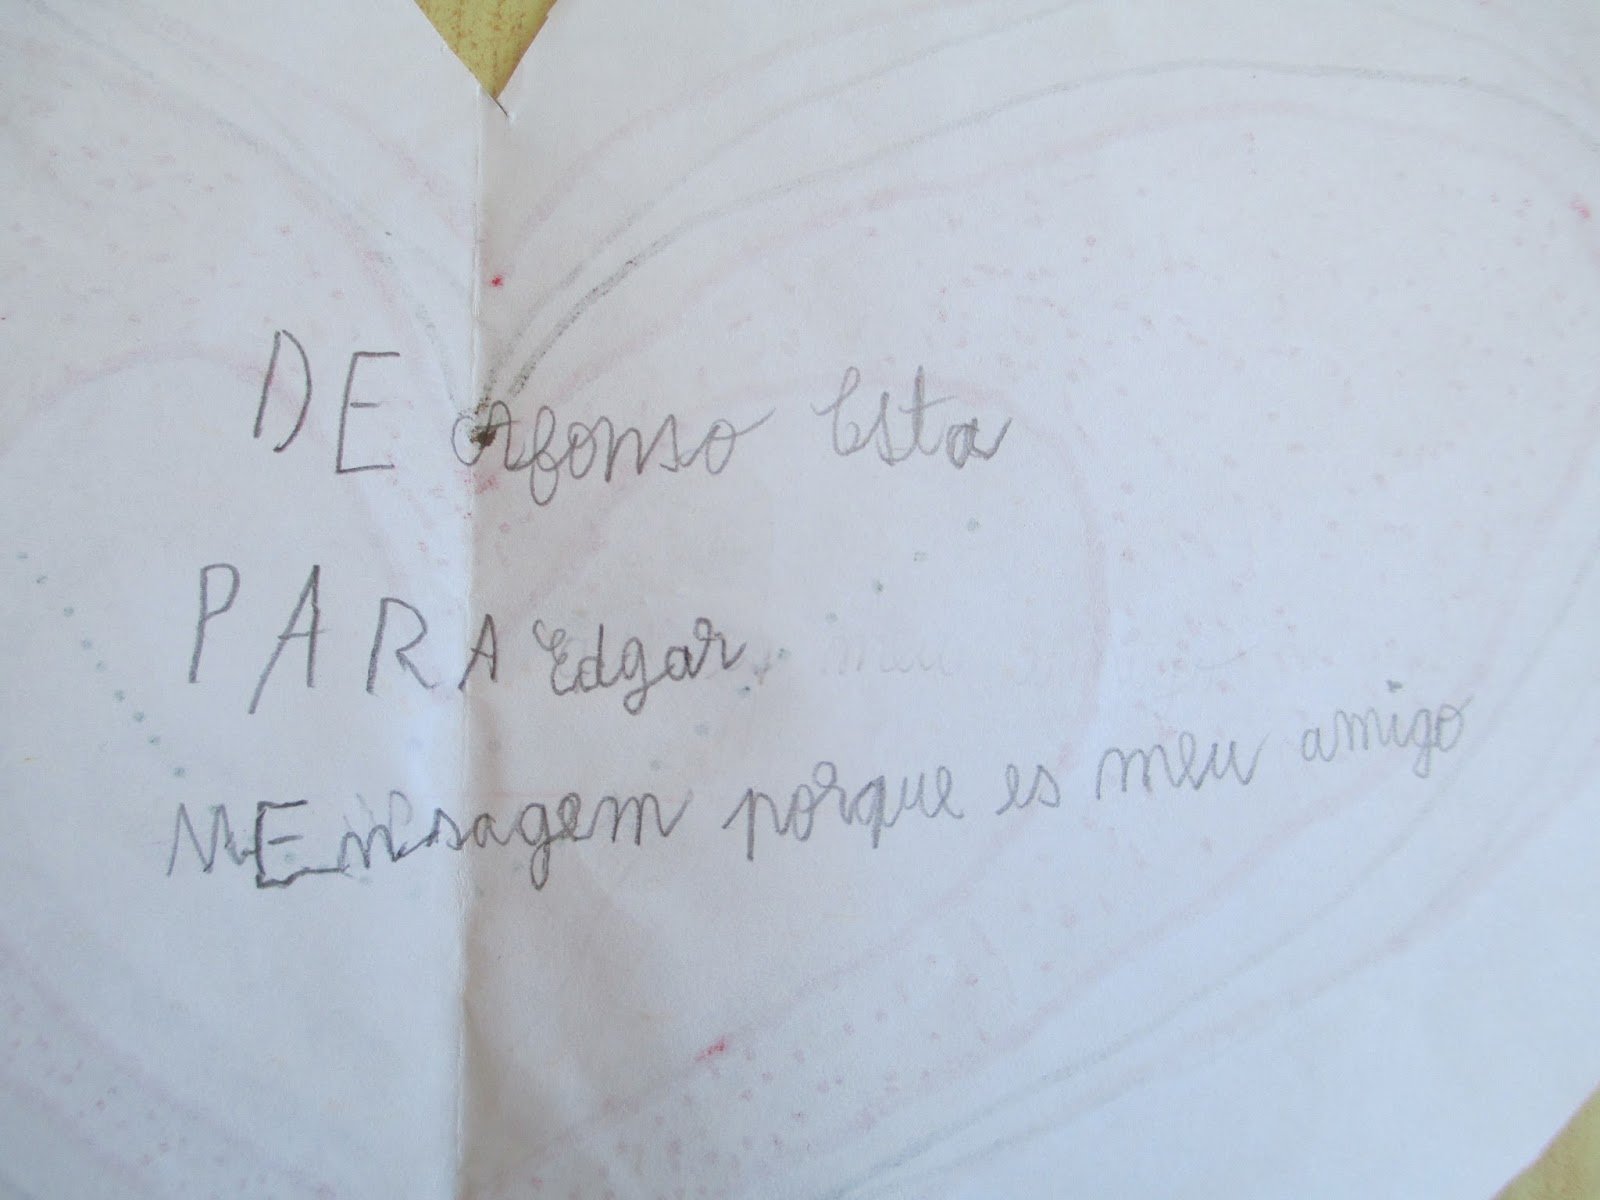 DE Afonso Esta
PARA Edgar
MEnsagem porque es meu amigo